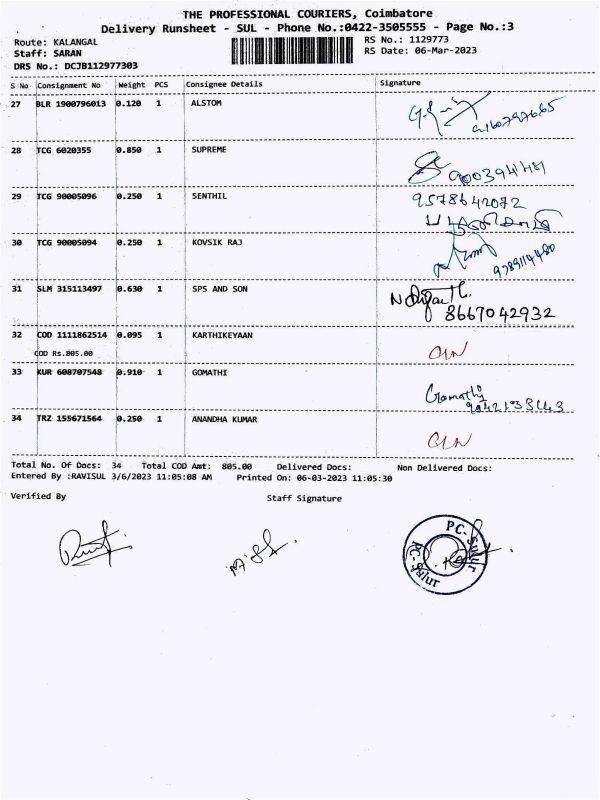 THE PROFESSIONAL COURIERS, Coimbatore
Delivery Runsheet - SUL - Phone No.:0422-3505555 - Page No.:3
Route: KALANGAL
RS No.: 1129773
Staff: SARAN
RS Date: 06-Mar-2023
DRS No.: DCJB112977303
S No Consignment No Weight PCS Consignee Details Signature
27 BLR 1900796013 0.120 1 ALSTOM
28 TCG 6020355 0.850 1 SUPREME
29 TCG 90005096 0.250 1 SENTHIL 9578642072
30 TCG 90005094 0.250 1 KOVSIK RAJ
9789114480
31 SLM 315113497 0.630 1 SPS AND SON
8667042932
32 COD 1111862514 0.095 1 KARTHIKEYAAN
COD Rs.805.00
33 KUR 608707548 0.910 1 GOMATHI
Gomathi
34 TRZ 155671564 0.250 1 ANANDHA KUMAR
Total No. Of Docs: 34 Total COD Amt: 805.00 Delivered Docs: Non Delivered Docs:
Entered By :RAVISUL 3/6/2023 11:05:08 AM Printed On: 06-03-2023 11:05:30
Verified By Staff Signature
PC-Sulur
PC-Sulur